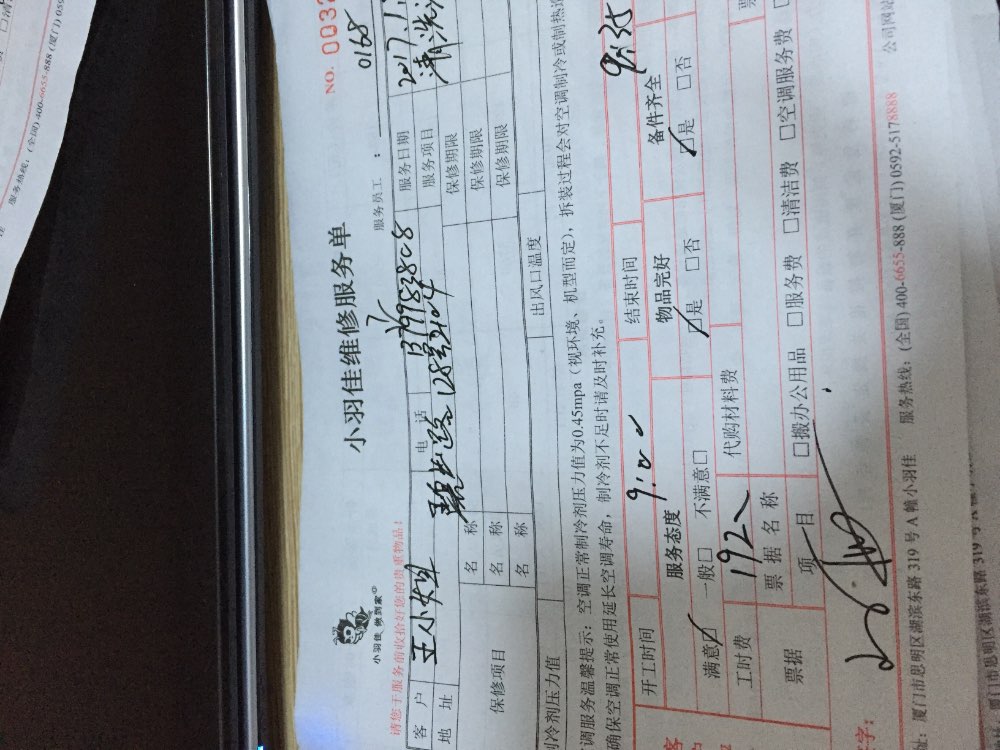 NO. 0032
小羽佳 做到家
小羽佳维修服务单
请您于服务前收拾好您的贵重物品！
服务员工： 0168
客户 电话 13799838208 服务日期 2017.1.
地址 128号2104 服务项目 清洗
保修项目 名称 保修期限
名称 保修期限
名称 保修期限
制冷剂压力值 出风口温度
调服务温馨提示：空调正常制冷剂压力值为0.45mpa（视环境、机型而定），拆装过程会对空调制冷或制热造
确保空调正常使用延长空调寿命，制冷剂不足时请及时补充。
开工时间 9:00 结束时间 9:35
服务态度 物品完好 备件齐全
满意☑ 一般□ 不满意□ ☑是 □否 ☑是 □否
工时费 192 代购材料费
票据 票据名称
项目 □搬办公用品 □服务费 □清洁费 □空调服务费
字：
厦门市思明区湖滨东路 319 号 A 幢小羽佳 服务热线：(全国) 400-6655-888 (厦门) 0592-5178888 公司网站
服务热线：(全国) 400-6655-888 (厦门) 059
厦门市思明区湖滨东路 319 号